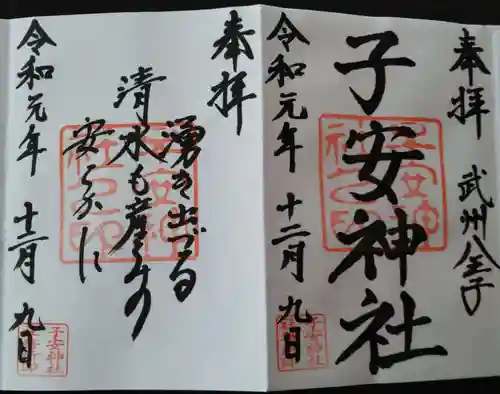 奉拝
武州八王子
子安神社
令和元年 十二月 九日
奉拝
湧き出づる
清水も産みの
安らかに
令和元年 十二月 九日
子安神社